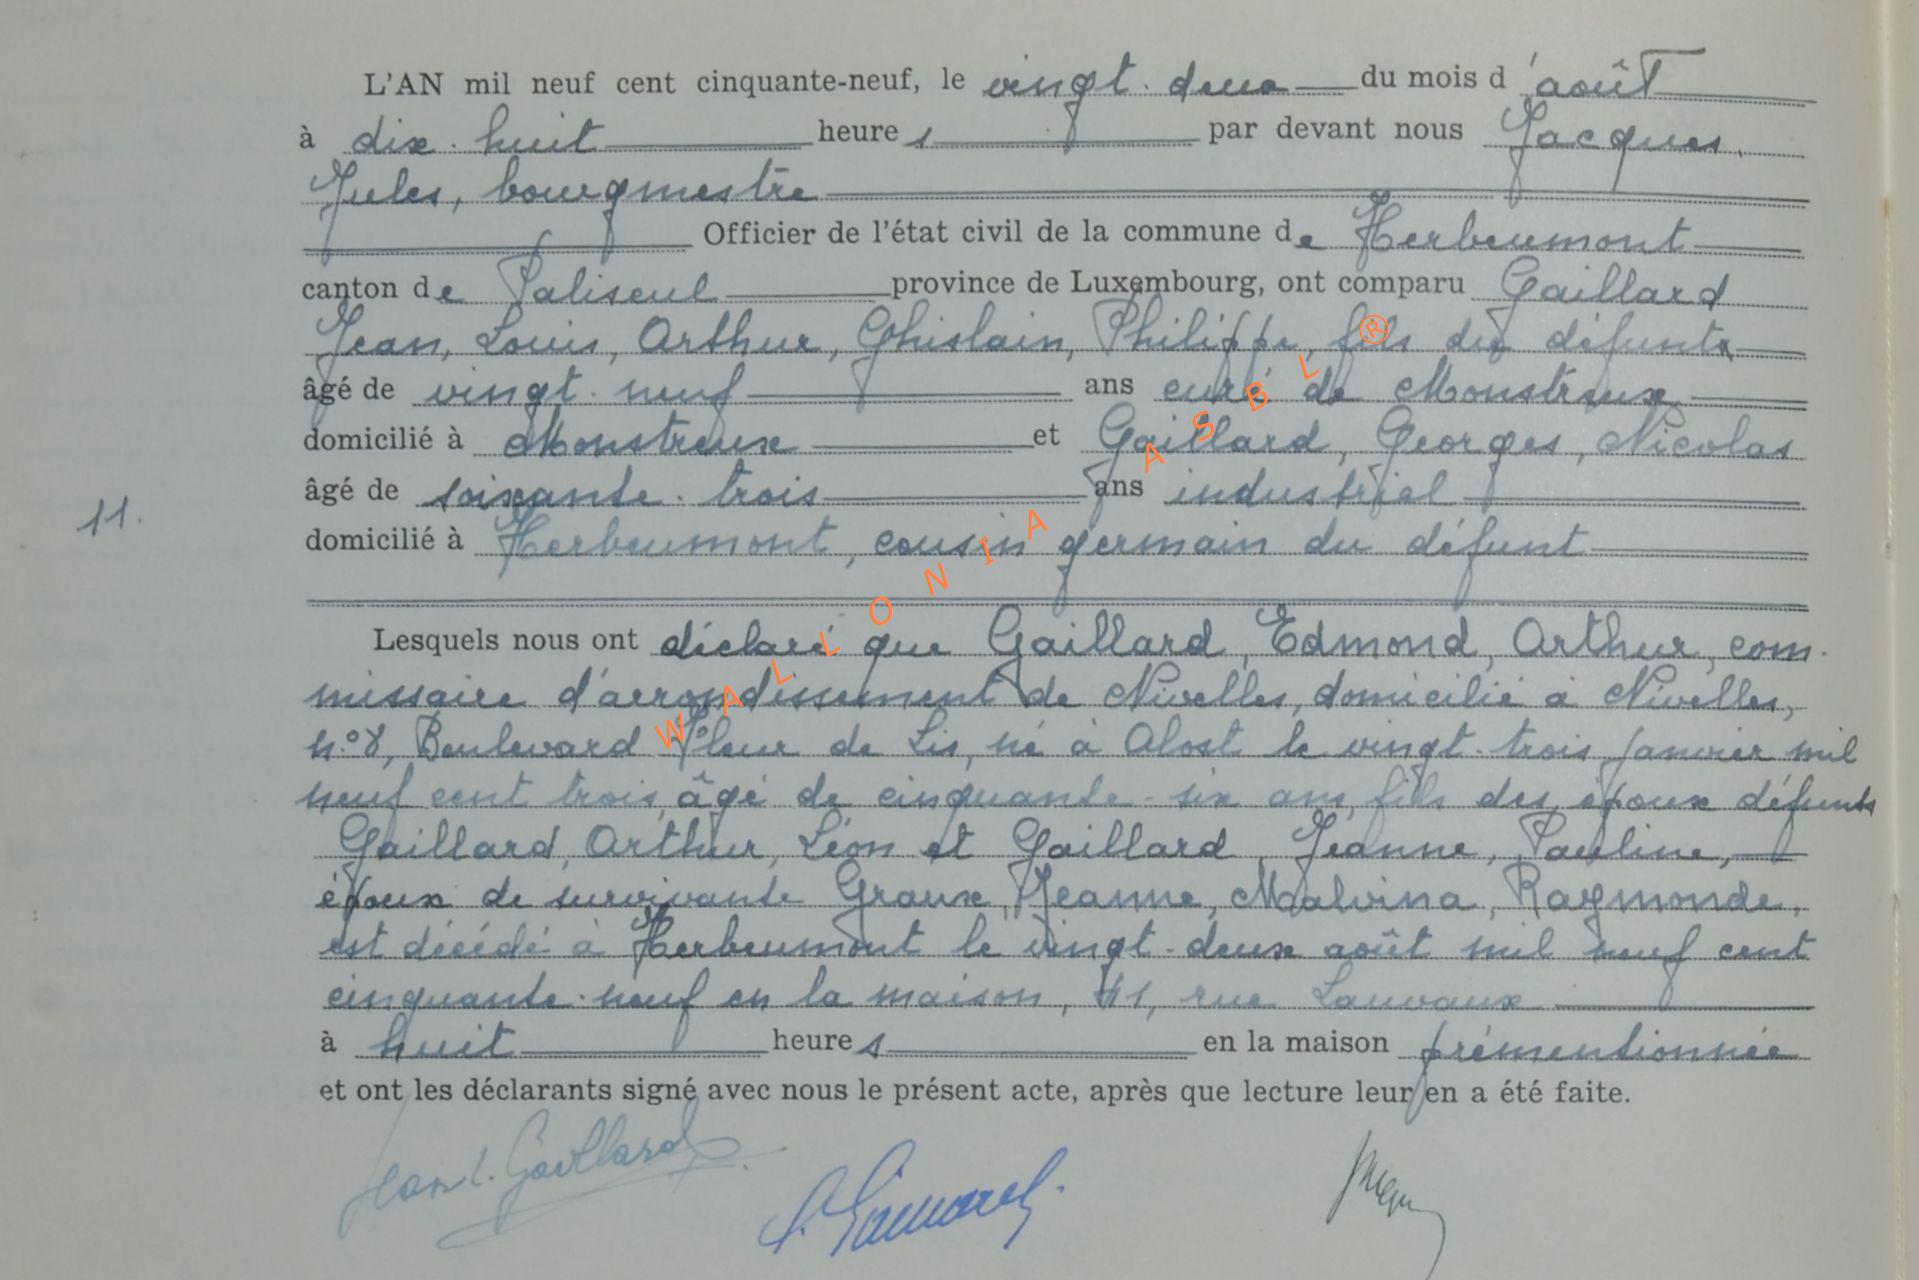 L'AN mil neuf cent cinquante-neuf, le vingt-deux du mois d'août
à dix-huit heures par devant nous Jacques,
Jules, bourgmestre
Officier de l'état civil de la commune de Herbeumont
canton de Paliseul province de Luxembourg, ont comparu Gaillard
Jean, Louis, Arthur, Ghislain, Philippe, fils du défunt
âgé de vingt-neuf ans curé de Monstreux
domicilié à Monstreux et Gaillard, Georges, Nicolas
âgé de soixante-trois ans industriel
11.
domicilié à Herbeumont, cousin germain du défunt
Lesquels nous ont déclaré que Gaillard, Edmond, Arthur, com-
missaire d'arrondissement de Nivelles, domicilié à Nivelles,
n°8, Boulevard Fleur de Lis, né à Alost le vingt-trois janvier mil
neuf cent trois, âgé de cinquante-six ans, fils des époux défunts
Gaillard, Arthur, Léon et Gaillard, Jeanne, Pauline,
époux de survivante Graux, Jeanne, Malvina, Raymonde,
est décédé à Herbeumont le vingt-deux août mil neuf cent
cinquante-neuf en la maison, 41, rue Lauvaux
à huit heures en la maison prémentionnée
et ont les déclarants signé avec nous le présent acte, après que lecture leur en a été faite.
Jean L. Gaillard
WALLONIA ASBL ®